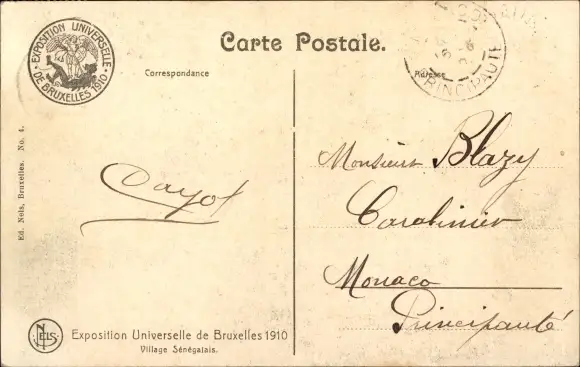 EXPOSITION UNIVERSELLE
DE BRUXELLES 1910
Carte Postale.
Correspondance
Adresse
PRINCIPAUTÉ
Ed. Nels, Bruxelles. No. 4.
Monsieur Blazy
Carabinier
Monaco
Principauté
Cayol
NELS
Exposition Universelle de Bruxelles 1910
Village Sénégalais.